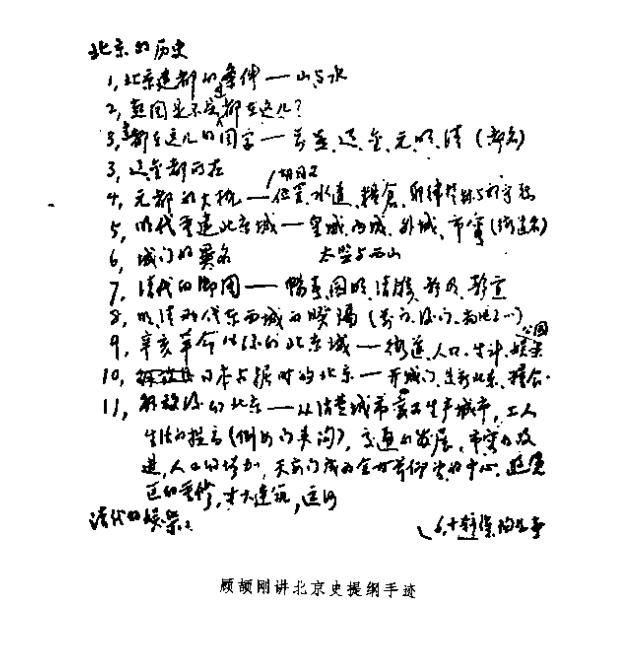 北京的历史
1,北京建都的条件——山与水
2,燕国是不是都在这儿?
3,都在这儿的国家——燕、辽、金、元、明、清(都名)
3,辽金都所在
4,元都的大概——位置、水道、粮仓、
5,明代重建北京城——皇城、内城、外城、市容(街道名)
6,城门的异名 太监与西山
7,清代的御园——畅春、圆明、清漪、静明、静宜
8,明、清两代东西城的暌隔(
9,辛亥革命以后的北京城——街道、人口、生计、娱乐 公园
10,日本占据时的北京——开城门、
11,解放后的北京——从消费城市变为生产城市,工人
生活的提高(例如门头沟),交通的发展、市容的改
进,人口的增加,天安门成为全世界仰望的中心、
区的重修,才大建筑,运河
清代的娱乐
顾颉刚讲北京史提纲手迹